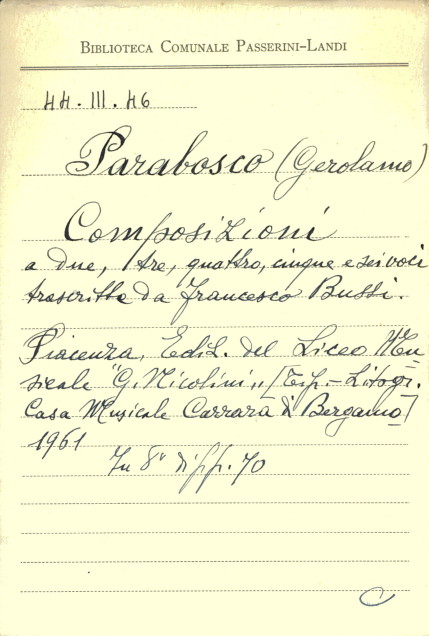 BIBLIOTECA COMUNALE PASSERINI-LANDI
44. III. 46
Parabosco (Gerolamo)
Composizioni
a due, tre, quattro, cinque e sei voci
trascritte da Francesco Bussi.
Piacenza, Ediz. del Liceo Mu-
sicale "G. Nicolini" [Tip.-Litogr.
Casa Musicale Carrara di Bergamo]
1961
In 8° di pp. 70
C